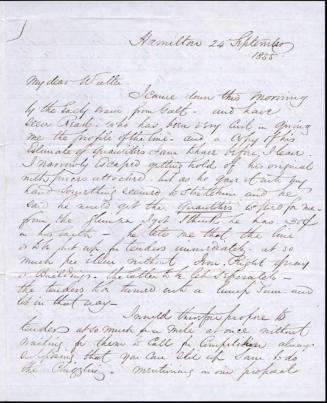 Hamilton 24 September
1855
My dear Walter
I came down this morning
by the early train from Galt - and have
seen Read - who has been very civil in giving
me the profile of the line - and a copy of his
Estimate of quantities
I narrowly escaped getting hold of his original
with prices attached - but as he gave it out of
hand something seemed to strike him and he
said he would get the quantities
from the
in his - he tells me that the line
is to be put up for tenders immediately at so
much per mile without Iron, Right of way
or Buildings. The latter to be let separately -
the tenders
let in that way -
I would therefore propose to
tender at so much per mile at once without
waiting for them to call for Competition always
supposing that you can
the - mentioning in our proposal